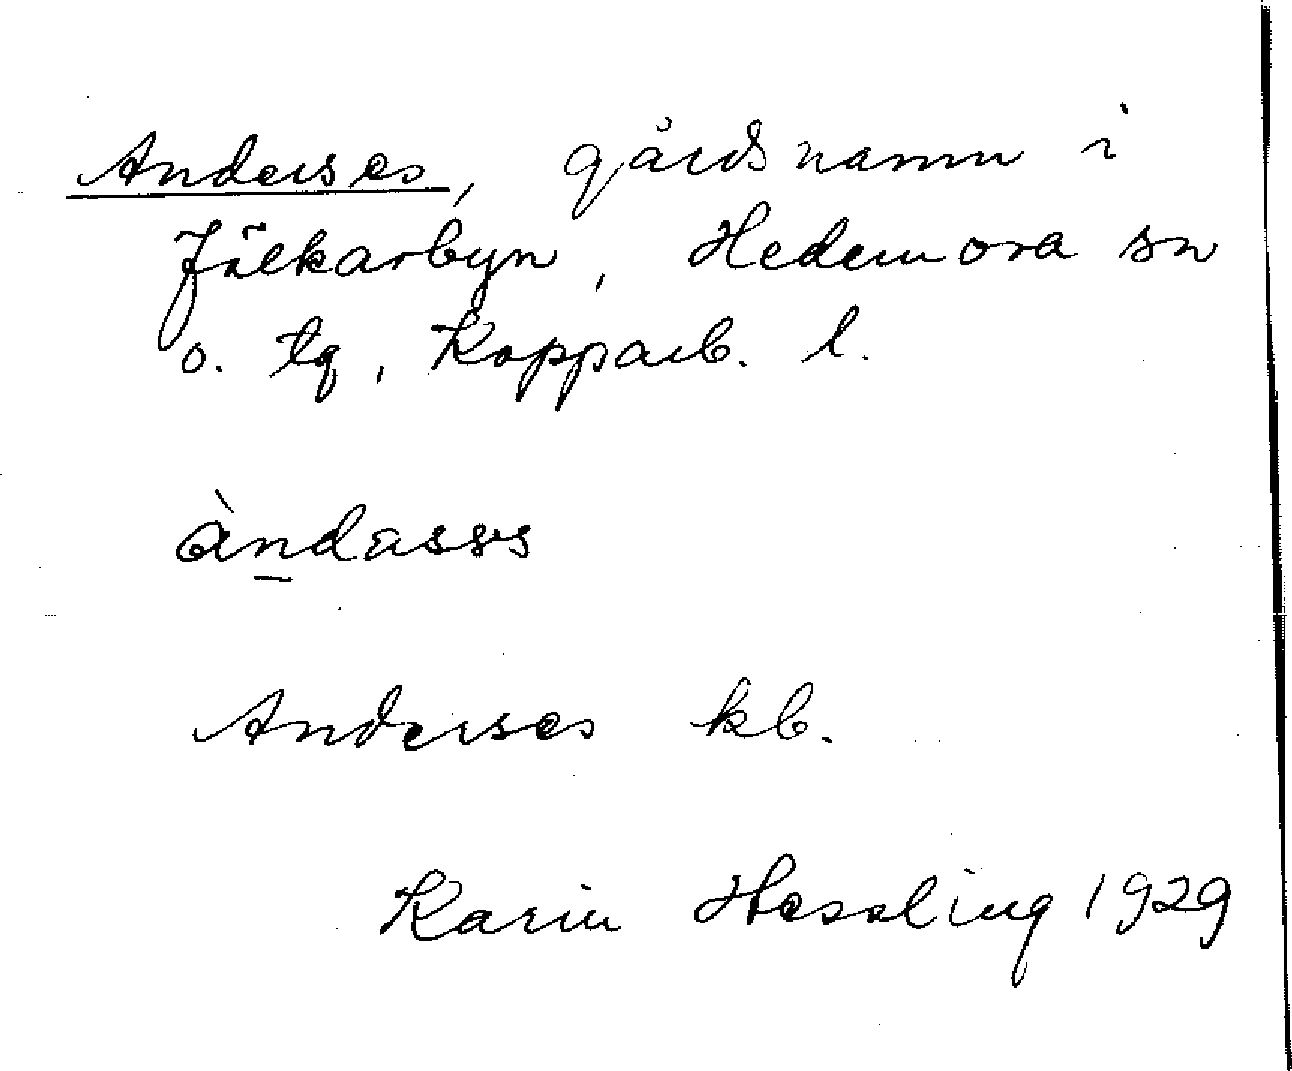 Anderses, gårdsnamn i
Jälkarbyn, Hedemora sn
o. tg, Kopparb. l.
àndasss
Anderses kb.
Karin Hessling 1929